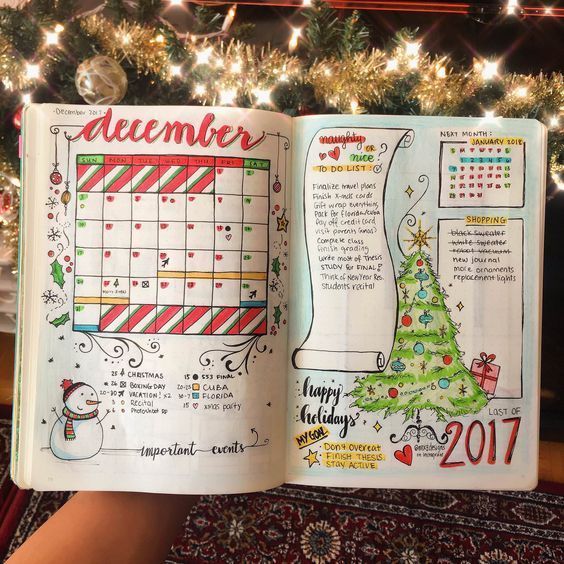 December 2017
december
SUN MON TUES WED THUR FRI SAT
25 CHRISTMAS
26 BOXING DAY
20-30 VACATION! x2
3 Recital
6 Photoshoot
15 553 FINAL
20-23 CUBA
28-31 FLORIDA
15 xmas party
important events
naughty
OR nice
TO DO LIST:
Finalize travel plans
Finish X-mas cards
Gift wrap everything
Pack for Florida/Cuba
Pay off credit card
visit parents (xmas)
Complete class
finish grading
Write more of Thesis
STUDY for FINAL!
Think of New Year Res.
Students recital
NEXT MONTH:
JANUARY 2018
SHOPPING
black sweater
white sweater
robot vacuum
new journal
more ornaments
replacement lights
happy
holidays
MY GOAL
DON'T OVEREAT
FINISH THESIS
STAY ACTIVE
LAST OF
2017
on Instagram